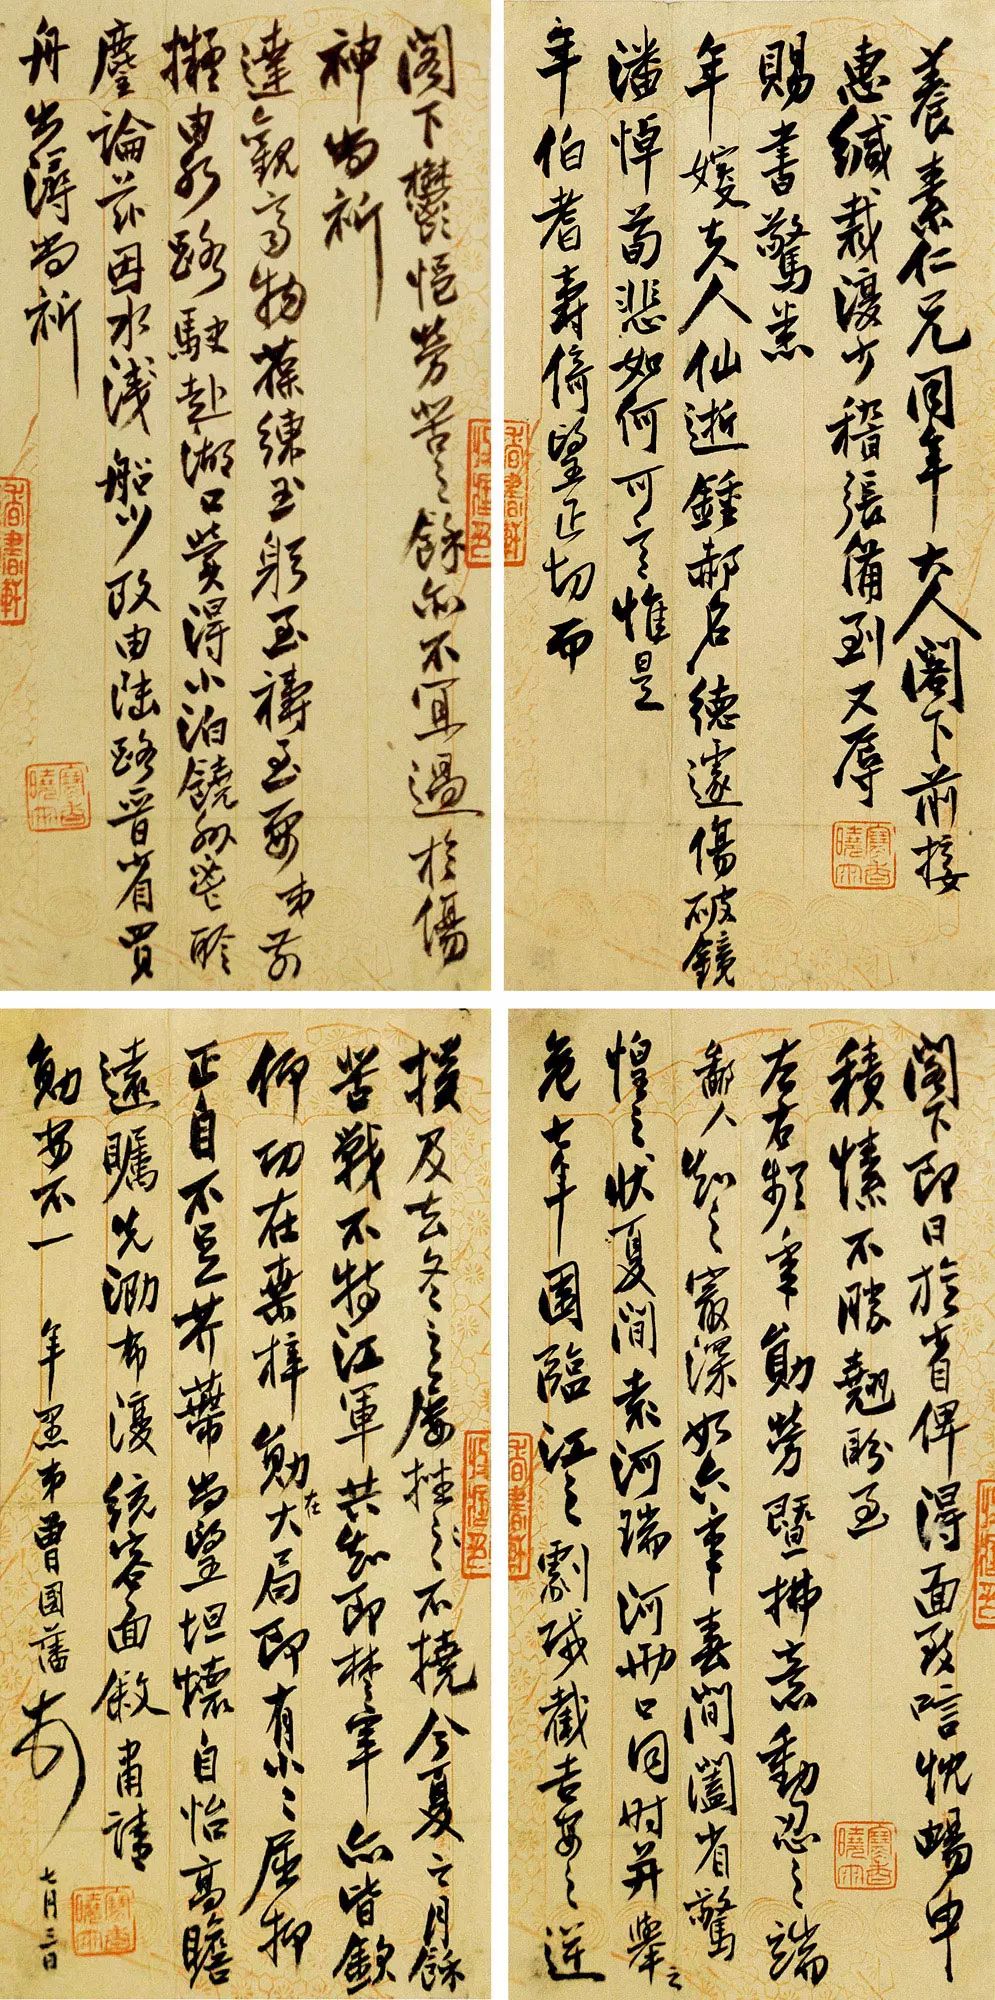 養素仁兄同年大人閣下前接
惠緘裁復少稽張備到又辱
賜書驚悉
年嫂夫人仙逝鍾郝名德遽傷破鏡
潘悼荀悲如何可言惟是
年伯耆壽倚望正切而
閣下鬱悒勞苦之餘亦不宜過於傷
神尚祈
達觀高物葆練玉躬至禱至要弟前
擬由水路駛赴湖口冀得小泊饒州暢聆
麈論茲因水淺船少改由陸路晉省買
舟出潯尚祈
閣下即日於省俾得面致唁忱暢申
積愫不勝翹盼至
左右頻年勛勞暨拂意動忍之端
鄙人知之最深如六年春間闔省驚
惶之狀夏間袁河瑞河兩口同時並舉之
危七年圖臨江之劇城截吉安之逆
援及去冬之屢挫之不撓今夏之月餘
苦戰不特江軍共知即楚軍亦皆欽
仰功在桑梓勛在大局即有小小屈抑
正自不足芥蒂尚望坦懷自怡高瞻
遠矚先泐布復統容面敘肅請
勛安不一 年愚弟曾國藩頓首 七月三日